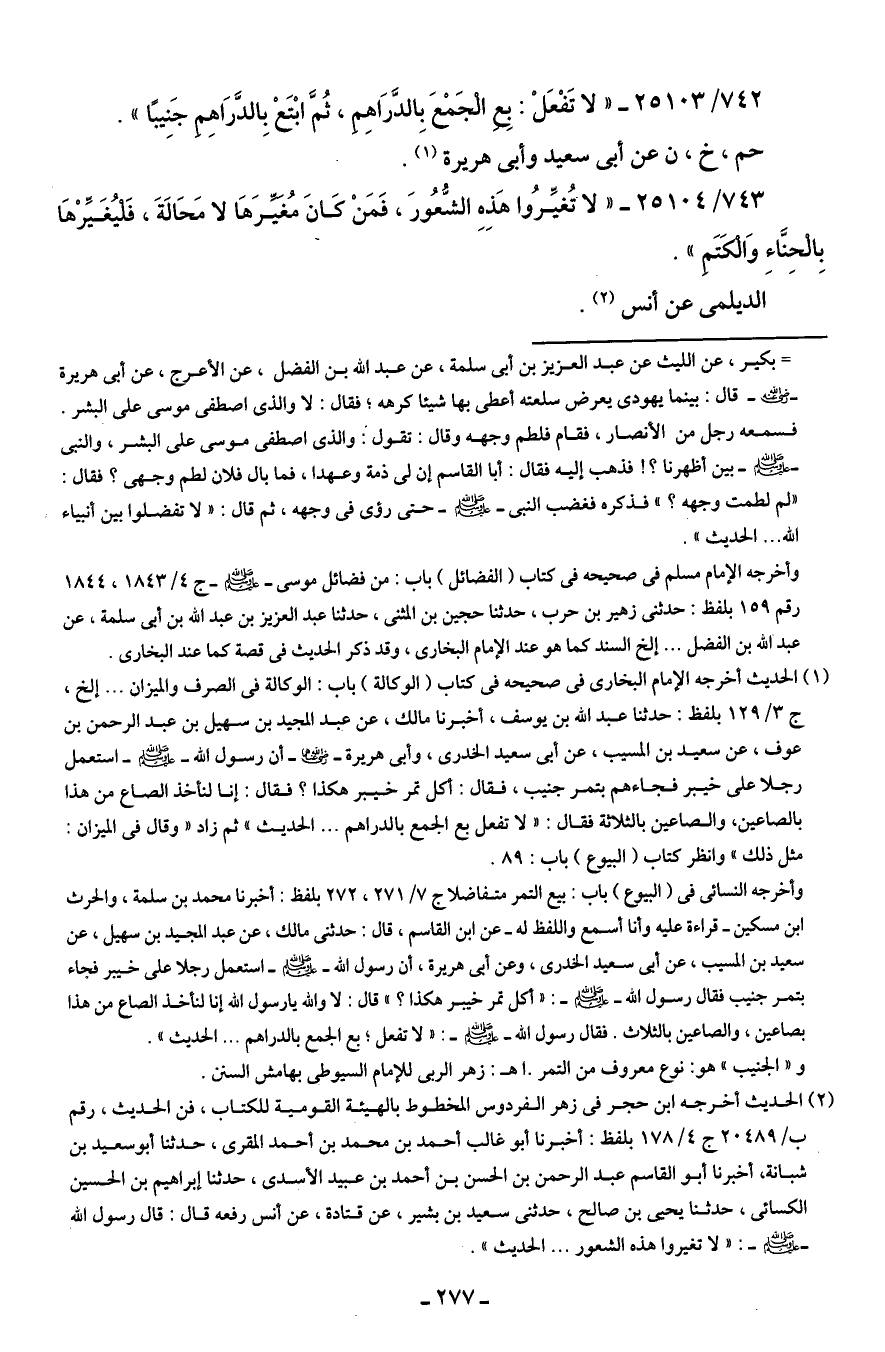 ٢٥١٠٣/٧٤٢ ـ « لا تَفْعَلْ : بِعِ الْجَمْعَ بِالدَّرَاهِمِ ، ثُمَّ ابْتَعْ بِالدَّرَاهِمِ جَنِيبًا » .
حم ، خ ، ن عن أبى سعيد وأبى هريرة (١) .
٢٥١٠٤/٧٤٣ ـ « لا تُغَيِّرُوا هَذِهِ الشُّعُورَ ، فَمَنْ كَانَ مُغَيِّرَهَا لا مَحَالَةَ ، فَلْيُغَيِّرْهَا
بِالْحِنَّاءِ وَالْكَتَمِ » .
الديلمى عن أنس (٢) .
= بكير ، عن الليث عن عبد العزيز بن أبى سلمة ، عن عبد الله بن الفضل ، عن الأعرج ، عن أبى هريرة
ـ رضي الله عنه ـ قال : بينما يهودى يعرض سلعته أعطى بها شيئا كرهه ؛ فقال : لا والذى اصطفى موسى على البشر .
فسمعه رجل من الأنصار ، فقام فلطم وجهه وقال : تقول : والذى اصطفى موسى على البشر ، والنبى
ـ ﷺ ـ بين أظهرنا ؟! فذهب إليه فقال : أبا القاسم إن لى ذمة وعهدا ، فما بال فلان لطم وجهى ؟ فقال :
«لم لطمت وجهه ؟ » فذكره فغضب النبى ـ ﷺ ـ حتى رؤى فى وجهه ، ثم قال : « لا تفضلوا بين أنبياء
الله... الحديث » .
وأخرجه الإمام مسلم فى صحيحه فى كتاب ( الفضائل ) باب : من فضائل موسى ـ ﷺ ـ ج ٤/ ١٨٤٣ ، ١٨٤٤
رقم ١٥٩ بلفظ : حدثنى زهير بن حرب ، حدثنا حجين بن المثنى ، حدثنا عبد العزيز بن عبد الله بن أبى سلمة ، عن
عبد الله بن الفضل ... إلخ السند كما هو عند الإمام البخارى ، وقد ذكر الحديث فى قصة كما عند البخارى .
(١) الحديث أخرجه الإمام البخارى فى صحيحه فى كتاب ( الوكالة ) باب : الوكالة فى الصرف والميزان ... إلخ ،
ج ٣/ ١٢٩ بلفظ : حدثنا عبد الله بن يوسف ، أخبرنا مالك ، عن عبد المجيد بن سهيل بن عبد الرحمن بن
عوف ، عن سعيد بن المسيب ، عن أبى سعيد الخدرى ، وأبى هريرة ـ رضي الله عنهما ـ أن رسول الله ـ ﷺ ـ استعمل
رجلا على خيبر فجاءهم بتمر جنيب ، فقال : أكل تمر خيبر هكذا ؟ فقال : إنا لنأخذ الصاع من هذا
بالصاعين، والصاعين بالثلاثة فقال : « لا تفعل بع الجمع بالدراهم ... الحديث » ثم زاد « وقال فى الميزان :
مثل ذلك » وانظر كتاب ( البيوع ) باب : ٨٩ .
وأخرجه النسائى فى ( البيوع ) باب : بيع التمر متفاضلا ج ٧/ ٢٧١ ، ٢٧٢ بلفظ : أخبرنا محمد بن سلمة ، والحرث
ابن مسكين ـ قراءة عليه وأنا أسمع واللفظ له ـ عن ابن القاسم ، قال : حدثنى مالك ، عن عبد المجيد بن سهيل ، عن
سعيد بن المسيب ، عن أبى سعيد الخدرى ، وعن أبى هريرة ، أن رسول الله ـ ﷺ ـ استعمل رجلا على خيبر فجاء
بتمر جنيب فقال رسول الله ـ ﷺ ـ : « أكل تمر خيبر هكذا ؟ » قال : لا والله يارسول الله إنا لنأخذ الصاع من هذا
بصاعين ، والصاعين بالثلاث . فقال رسول الله ـ ﷺ ـ : « لا تفعل ؛ بع الجمع بالدراهم ... الحديث » .
و « الجنيب » هو: نوع معروف من التمر .ا هـ : زهر الربى للإمام السيوطى بهامش السنن .
(٢) الحديث أخرجه ابن حجر فى زهر الفردوس المخطوط بالهيئة القومية للكتاب ، فن الحديث ، رقم
ب/ ٢٠٤٨٩ ج ٤/ ١٧٨ بلفظ : أخبرنا أبو غالب أحمد بن محمد بن أحمد المقرى ، حدثنا أبوسعيد بن
شبانة، أخبرنا أبو القاسم عبد الرحمن بن الحسن بن أحمد بن عبيد الأسدى ، حدثنا إبراهيم بن الحسين
الكسائى ، حدثنا يحيى بن صالح ، حدثنى سعيد بن بشير ، عن قتادة ، عن أنس رفعه قال : قال رسول الله
ـ ﷺ ـ : « لا تغيروا هذه الشعور ... الحديث » .
ـ ٢٧٧ ـ